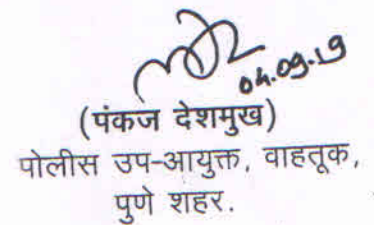 04.09.19
(पंकज देशमुख)
पोलीस उप-आयुक्त, वाहतूक,
पुणे शहर.